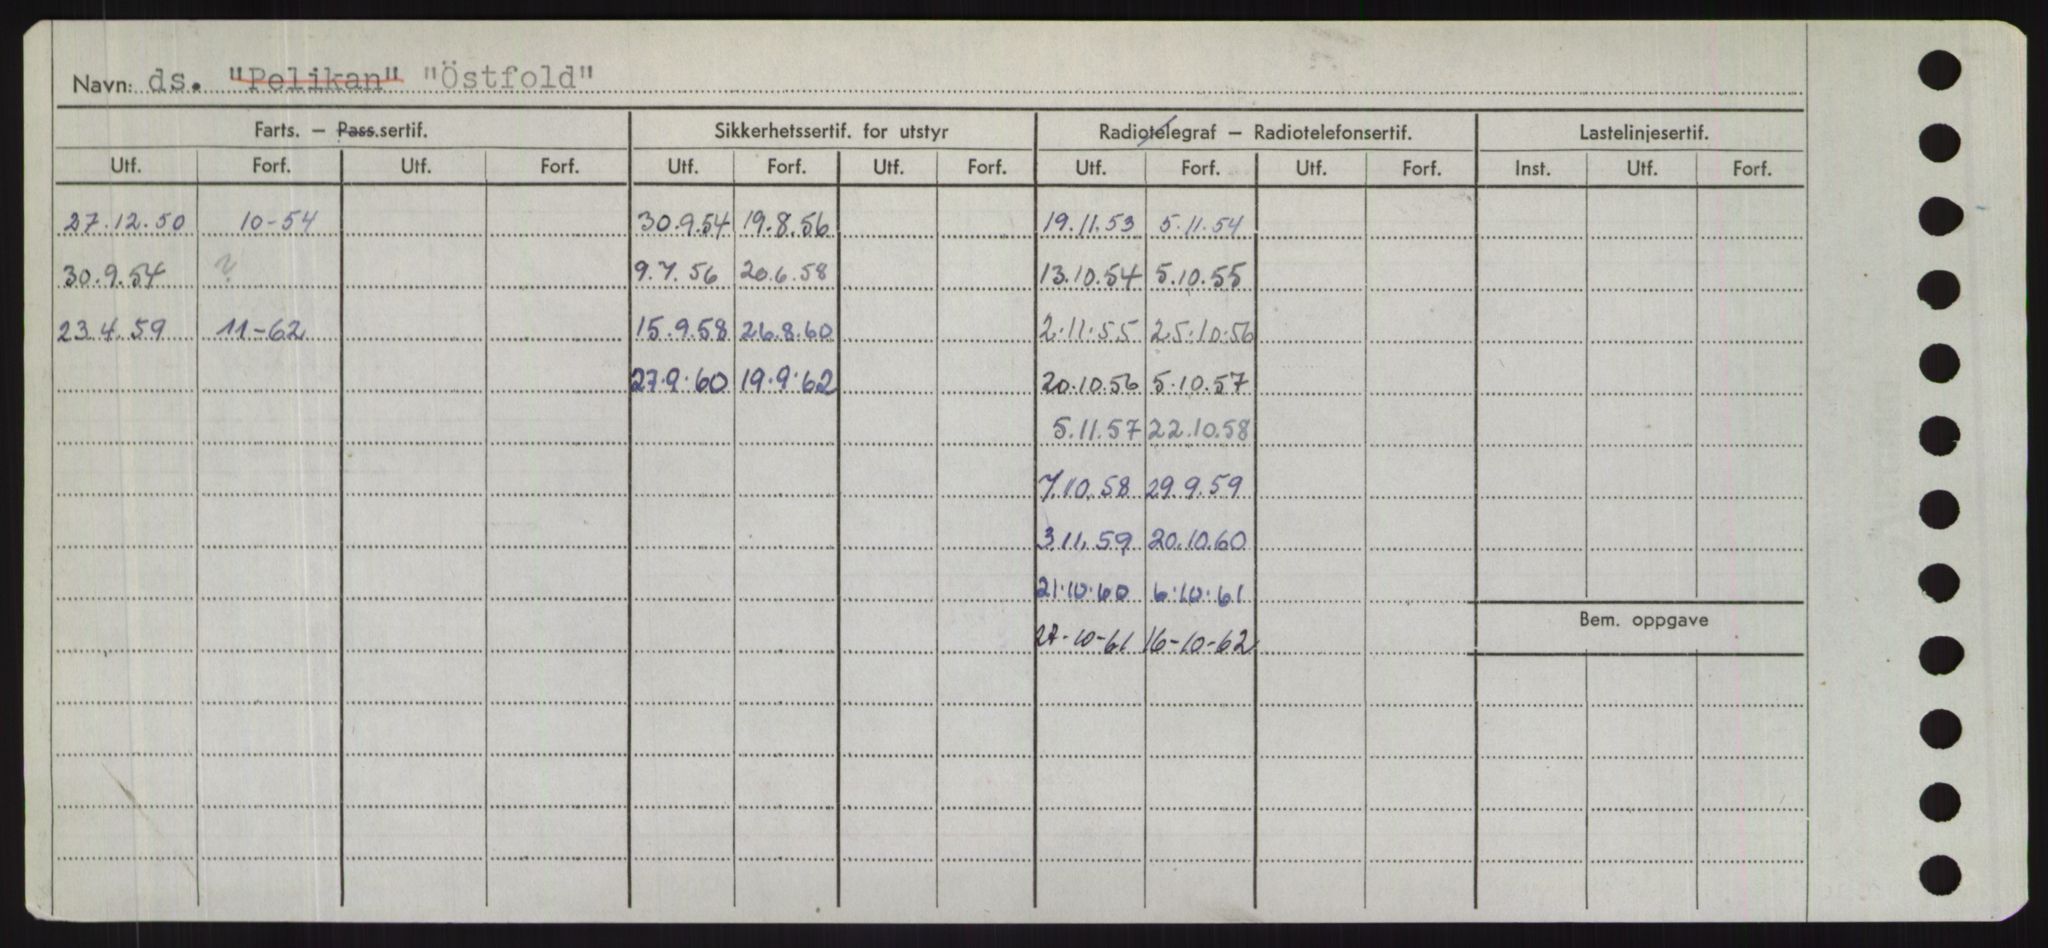 Navn: ds. "Pelikan" "Östfold"
Farts. – Pass.sertif. Sikkerhetssertif. for utstyr Radiotelegraf – Radiotelefonsertif. Lastelinjesertif.
Utf. Forf. Utf. Forf. Utf. Forf. Utf. Forf. Utf. Forf. Utf. Forf. Inst. Utf. Forf.
27.12.50 10-54 30.9.54 19.8.56 19.11.53 5.11.54
30.9.54 ? 9.7.56 20.6.58 13.10.54 5.10.55
23.4.59 11-62 15.9.58 26.8.60 2.11.55 25.10.56
27.9.60 19.9.62 20.10.56 5.10.57
5.11.57 22.10.58
7.10.58 29.9.59
3.11.59 20.10.60
21.10.60 6.10.61
Bem. oppgave
27-10-61 16-10-62